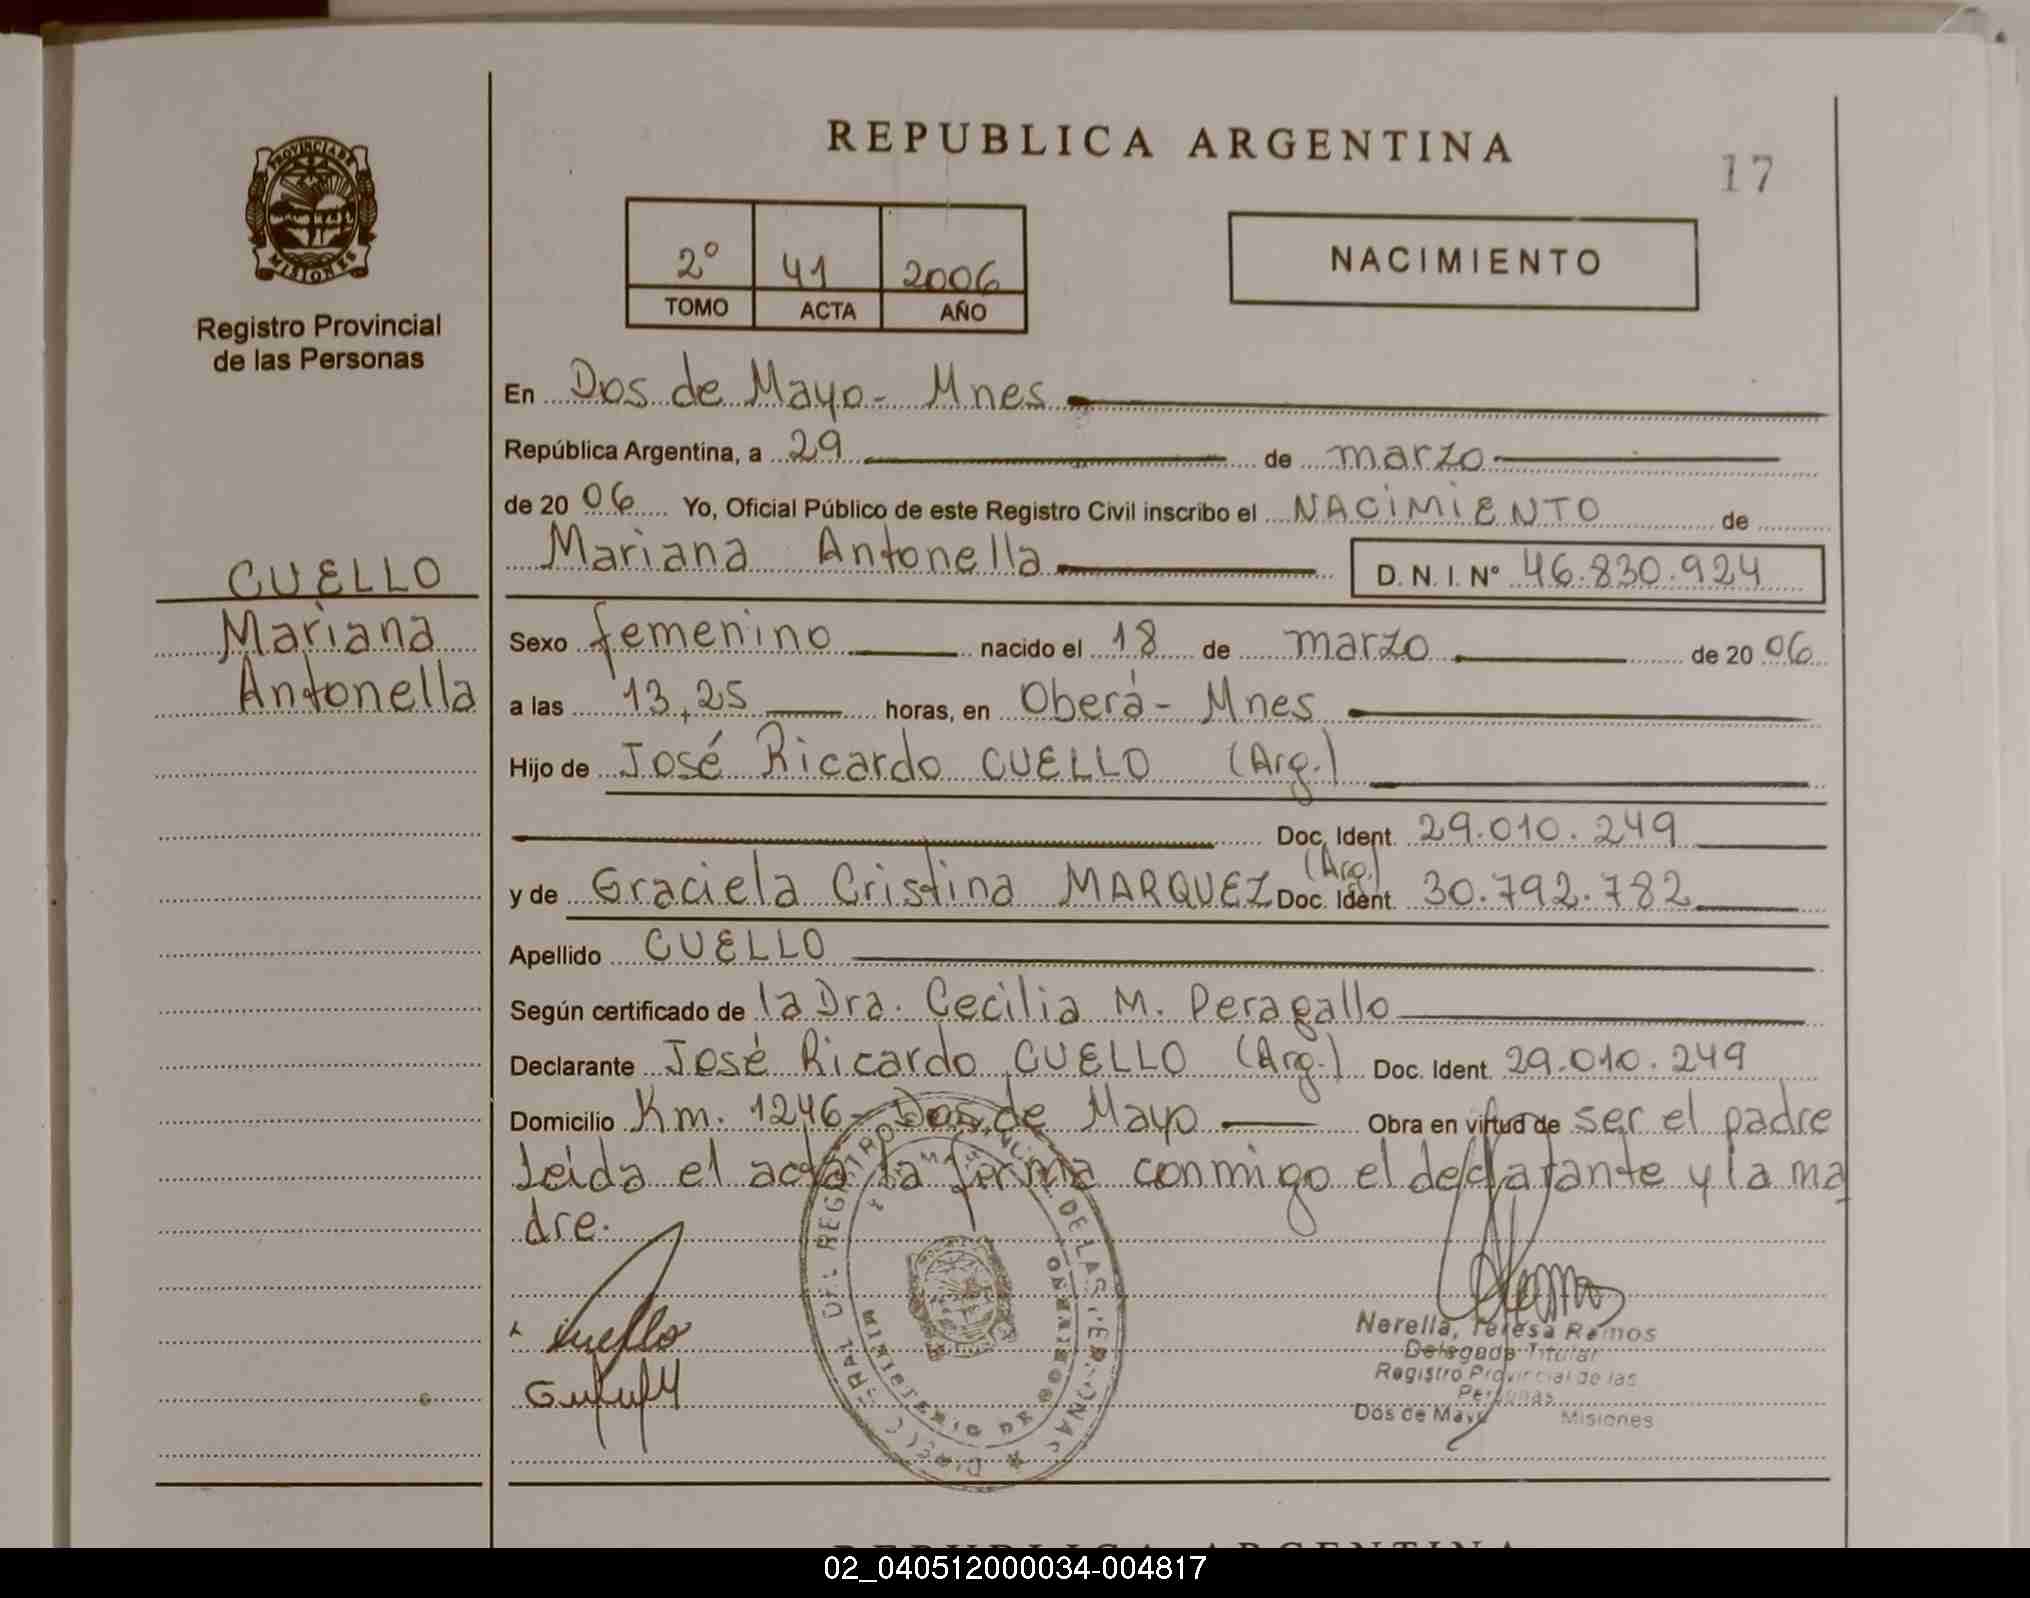 REPUBLICA ARGENTINA
17
PROVINCIA DE
MISIONES
Registro Provincial
de las Personas
2º 41 2006
TOMO ACTA AÑO
NACIMIENTO
En Dos de Mayo - Mnes
República Argentina, a 29 de marzo
de 20 06 Yo, Oficial Público de este Registro Civil inscribo el NACIMIENTO de
Mariana Antonella D.N.I. Nº 46.830.924
CUELLO
Mariana
Antonella
Sexo femenino nacido el 18 de marzo de 20 06
a las 13,25 horas, en Oberá - Mnes
Hijo de José Ricardo CUELLO (Arg.)
Doc. Ident. 29.010.249
y de Graciela Cristina MARQUEZ (Arg.) Doc. Ident. 30.792.782
Apellido CUELLO
Según certificado de la Dra. Cecilia M. Peragallo
Declarante José Ricardo CUELLO (Arg.) Doc. Ident. 29.010.249
Domicilio Km. 1246 - Dos de Mayo Obra en virtud de ser el padre
Leida el acta la firma conmigo el declarante y la ma
dre.
Cuello
Nerella, Teresa Ramos
Delegada Titular
Registro Provincial de las
Personas
Dos de Mayo Misiones
REPUBLICA ARGENTINA
02_040512000034-004817